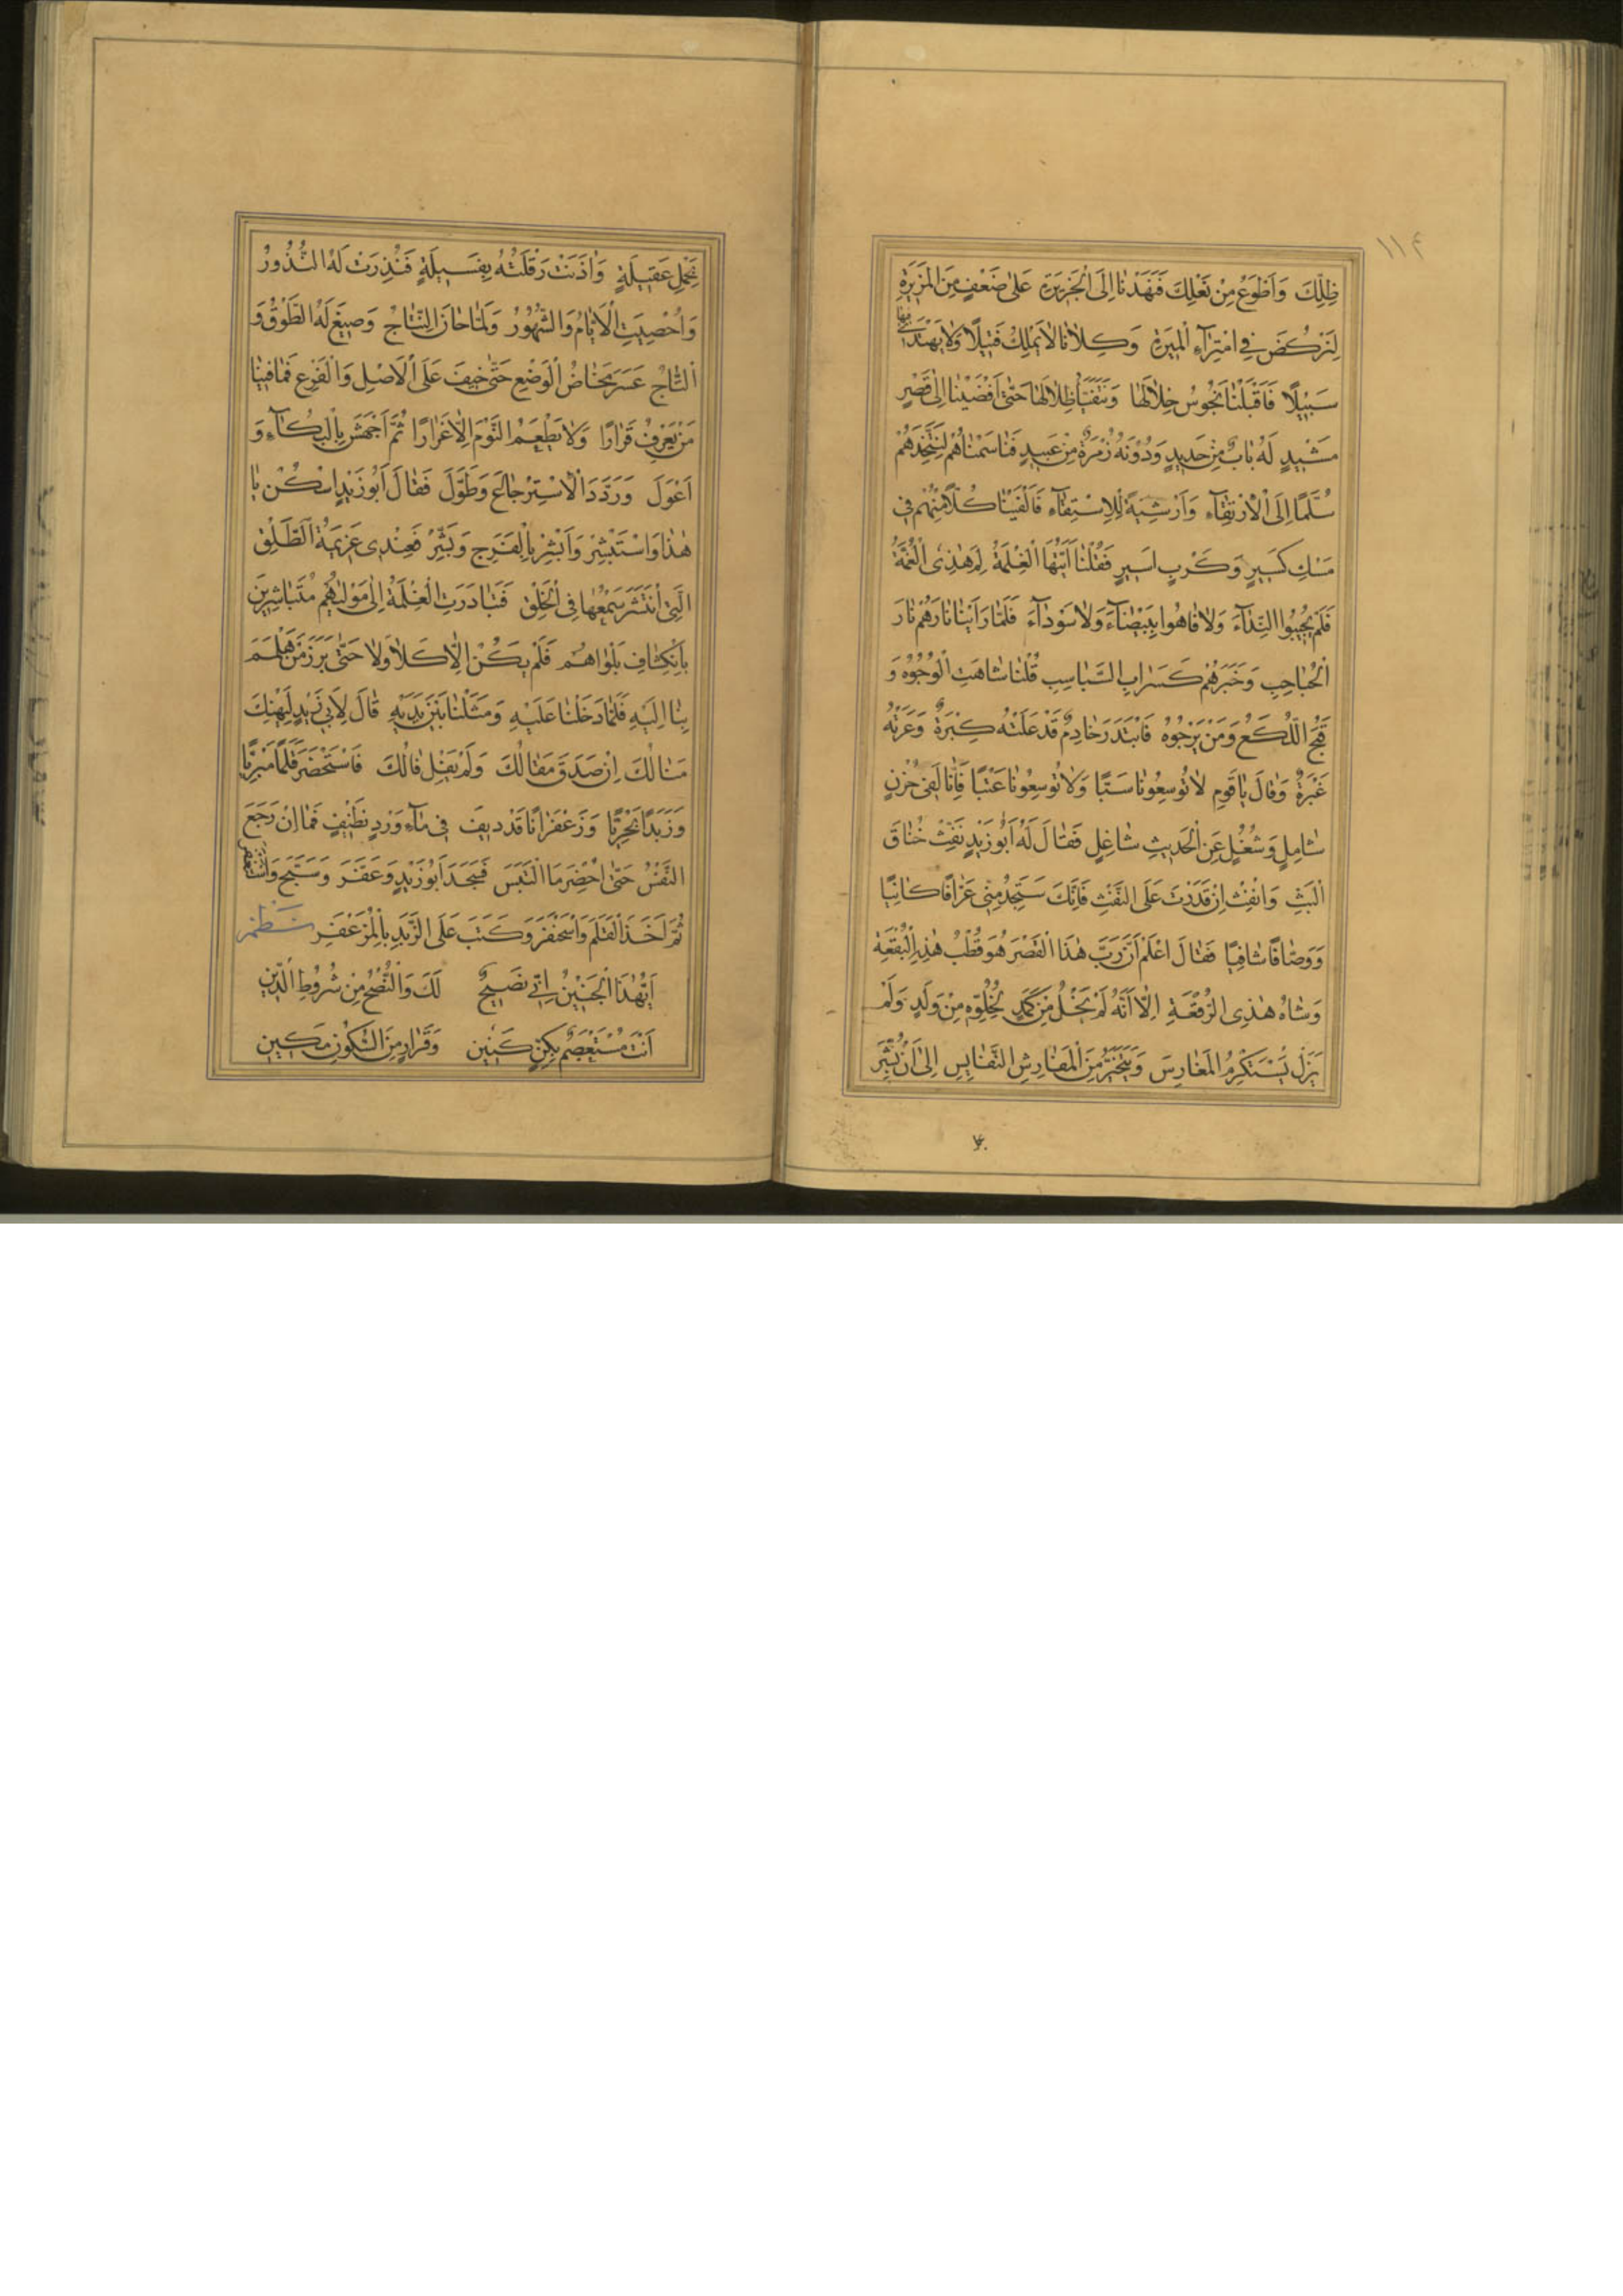 ١١٤
ظِلِّكَ وَاَطْوَعُ مِنْ نَعْلِكَ فَنَهَدْنَا اِلَى الْجَزِيرَةِ عَلَى ضَعْفٍ مِنَ الْمَرِيرَةِ
لِنَرْكُضَ فِى امْتِرَآءِ الْمِيرَةِ وَكِلَانَا لَا يَمْلِكُ فَتِيلًا وَلَا يَهْتَدِى فِيهَا
سَبِيلًا فَاَقْبَلْنَا نَجُوسُ خِلَالَهَا وَنَتَفَيَّأُ ظِلَالَهَا حَتّٰى اَفْضَيْنَا اِلٰى قَصْرٍ
مَشِيدٍ لَهُ بَابٌ مِنْ حَدِيدٍ وَدُونَهُ زُمْرَةٌ مِنْ عَبِيدٍ فَنَاسَمْنَاهُمْ لِنَتَّخِذَهُمْ
سُلَّمًا اِلَى الْاِرْتِقَآءِ وَاَرْشِيَةً لِلْاِسْتِقَآءِ فَاَلْفَيْنَا كُلًّا مِنْهُمْ فِى
مَسْكِ كَسِيرٍ وَكَرْبِ اَسِيرٍ فَقُلْنَا اَيَّتُهَا الْغِلْمَةُ لِمَ هٰذِى الْغُمَّةُ
فَلَمْ يُجِيبُوا النِّدَآءَ وَلَا فَاهُوا بِبَيْضَآءَ وَلَا سَوْدَآءَ فَلَمَّا رَاَيْنَا نَارَهُمْ نَارَ
الْحُبَاحِبِ وَخَبَرَهُمْ كَسَرَابِ السَّبَاسِبِ قُلْنَا شَاهَتِ الْوُجُوهُ وَ
قَبُحَ اللُّكَعُ وَمَنْ يَرْجُوهُ فَابْتَدَرَ خَادِمٌ قَدْ عَلَتْهُ كِبْرَةٌ وَعَرَتْهُ
عَبْرَةٌ وَقَالَ يَا قَوْمِ لَا تُوسِعُونَا سَبًّا وَلَا تُوسِعُونَا عَتْبًا فَاِنَّا لَفِى حُزْنٍ
شَامِلٍ وَشُغُلٍ عَنِ الْحَدِيثِ شَاغِلٍ فَقَالَ لَهُ اَبُو زَيْدٍ نَفِّثْ خُنَاقَ
الْبَثِّ وَانْفِثْ اِنْ قَدَرْتَ عَلَى النَّفْثِ فَاِنَّكَ سَتَجِدُ مِنِّى عَرَّافًا كَافِيًا
وَوَصَّافًا شَافِيًا فَقَالَ اعْلَمْ اَنَّ رَبَّ هٰذَا الْقَصْرَ هُوَ قُطْبُ هٰذِهِ الْبُقْعَةِ
وَشَاهُ هٰذِى الرُّقْعَةِ اِلَّا اَنَّهُ لَمْ يَخْلُ مِنْ كَمَدٍ لِخُلُوِّهِ مِنْ وَلَدٍ وَلَمْ
يَزَلْ يَسْتَكْرِمُ الْمَغَارِسَ وَيَتَخَيَّرُ مِنَ الْمَفَارِشِ النَّفَايِسِ اِلٰى اَنْ بُشِّرَ
بِحَمْلِ عَقِيلَةٍ وَاٰذَنَتْ رَقْلَتُهُ بِفَسِيلَةٍ فَنُذِرَتْ لَهُ النُّذُورُ
وَاُحْصِيَتِ الْاَيَّامُ وَالشُّهُورُ وَلَمَّا حَانَ النِّتَاجُ وَصِيغَ لَهُ الطَّوْقُ وَ
التَّاجُ عَسُرَ مَخَاضُ الْوَضْعِ حَتّٰى خِيفَ عَلَى الْاَصْلِ وَالْفَرْعِ فَمَا فِينَا
مَنْ يَعْرِفُ قَرَارًا وَلَا يَطْعَمُ النَّوْمَ اِلَّا غِرَارًا ثُمَّ اَجْهَشَ بِالْبُكَآءِ وَ
اَعْوَلَ وَرَدَّدَ الْاِسْتِرْجَاعَ وَطَوَّلَ فَقَالَ اَبُو زَيْدٍ اسْكُنْ يَا
هٰذَا وَاسْتَبْشِرْ وَاَبْشِرْ بِالْفَرَجِ وَبَشِّرْ فَعِنْدِى عَزِيمَةُ الطَّلْقِ
الَّتِى اْنَتَشَرَ سَمْعُهَا فِى الْخَلْقِ فَتَبَادَرَتِ الْغِلْمَةُ اِلٰى مَوْلٰيهُمْ مُتَبَاشِرِينَ
بِاْنْكِشَافِ بَلْوَاهُمْ فَلَمْ يَكُنْ اِلَّا كَلَا وَلَا حَتّٰى بَرَزَ مَنْ هَلْمَمَ
بِنَا اِلَيْهِ فَلَمَّا دَخَلْنَا عَلَيْهِ وَمَثَلْنَا بَيْنَ يَدَيْهِ قَالَ لِاَبِى زَيْدٍ لِيَهْنِكَ
مَنَالُكَ اِنْ صَدَقَ مَقَالُكَ وَلَمْ يَفِلْ فَالُكَ فَاسْتَحْضَرَ قَلَمًا مَبْرِيًّا
وَزَبَدًا بَحْرِيًّا وَزَعْفَرَانًا قَدْ دِيفَ فِى مَآءِ وَرْدٍ نَظِيفٍ فَمَا اِنْ رَجَعَ
النَّفَسُ حَتّٰى اُحْضِرَ مَا الْتَمَسَ فَسَجَدَ اَبُو زَيْدٍ وَعَفَّرَ وَسَبَّحَ وَاسْتَغْفَرَ
ثُمَّ اَخَذَ الْقَلَمَ وَاسْحَنْفَرَ وَكَتَبَ عَلَى الزَّبَدِ بِالْمُزَعْفَرِ نظم
اَيُّهٰذَا الْجَنِينُ اِنِّى نَصِيحٌ لَكَ وَالنُّصْحُ مِنْ شُرُوطِ الدِّينِ
اَنْتَ مُسْتَعْصِمٌ بِكِنٍّ كَنِينٍ وَقَرَارٍ مِنَ السُّكُونِ مَكِينٍ